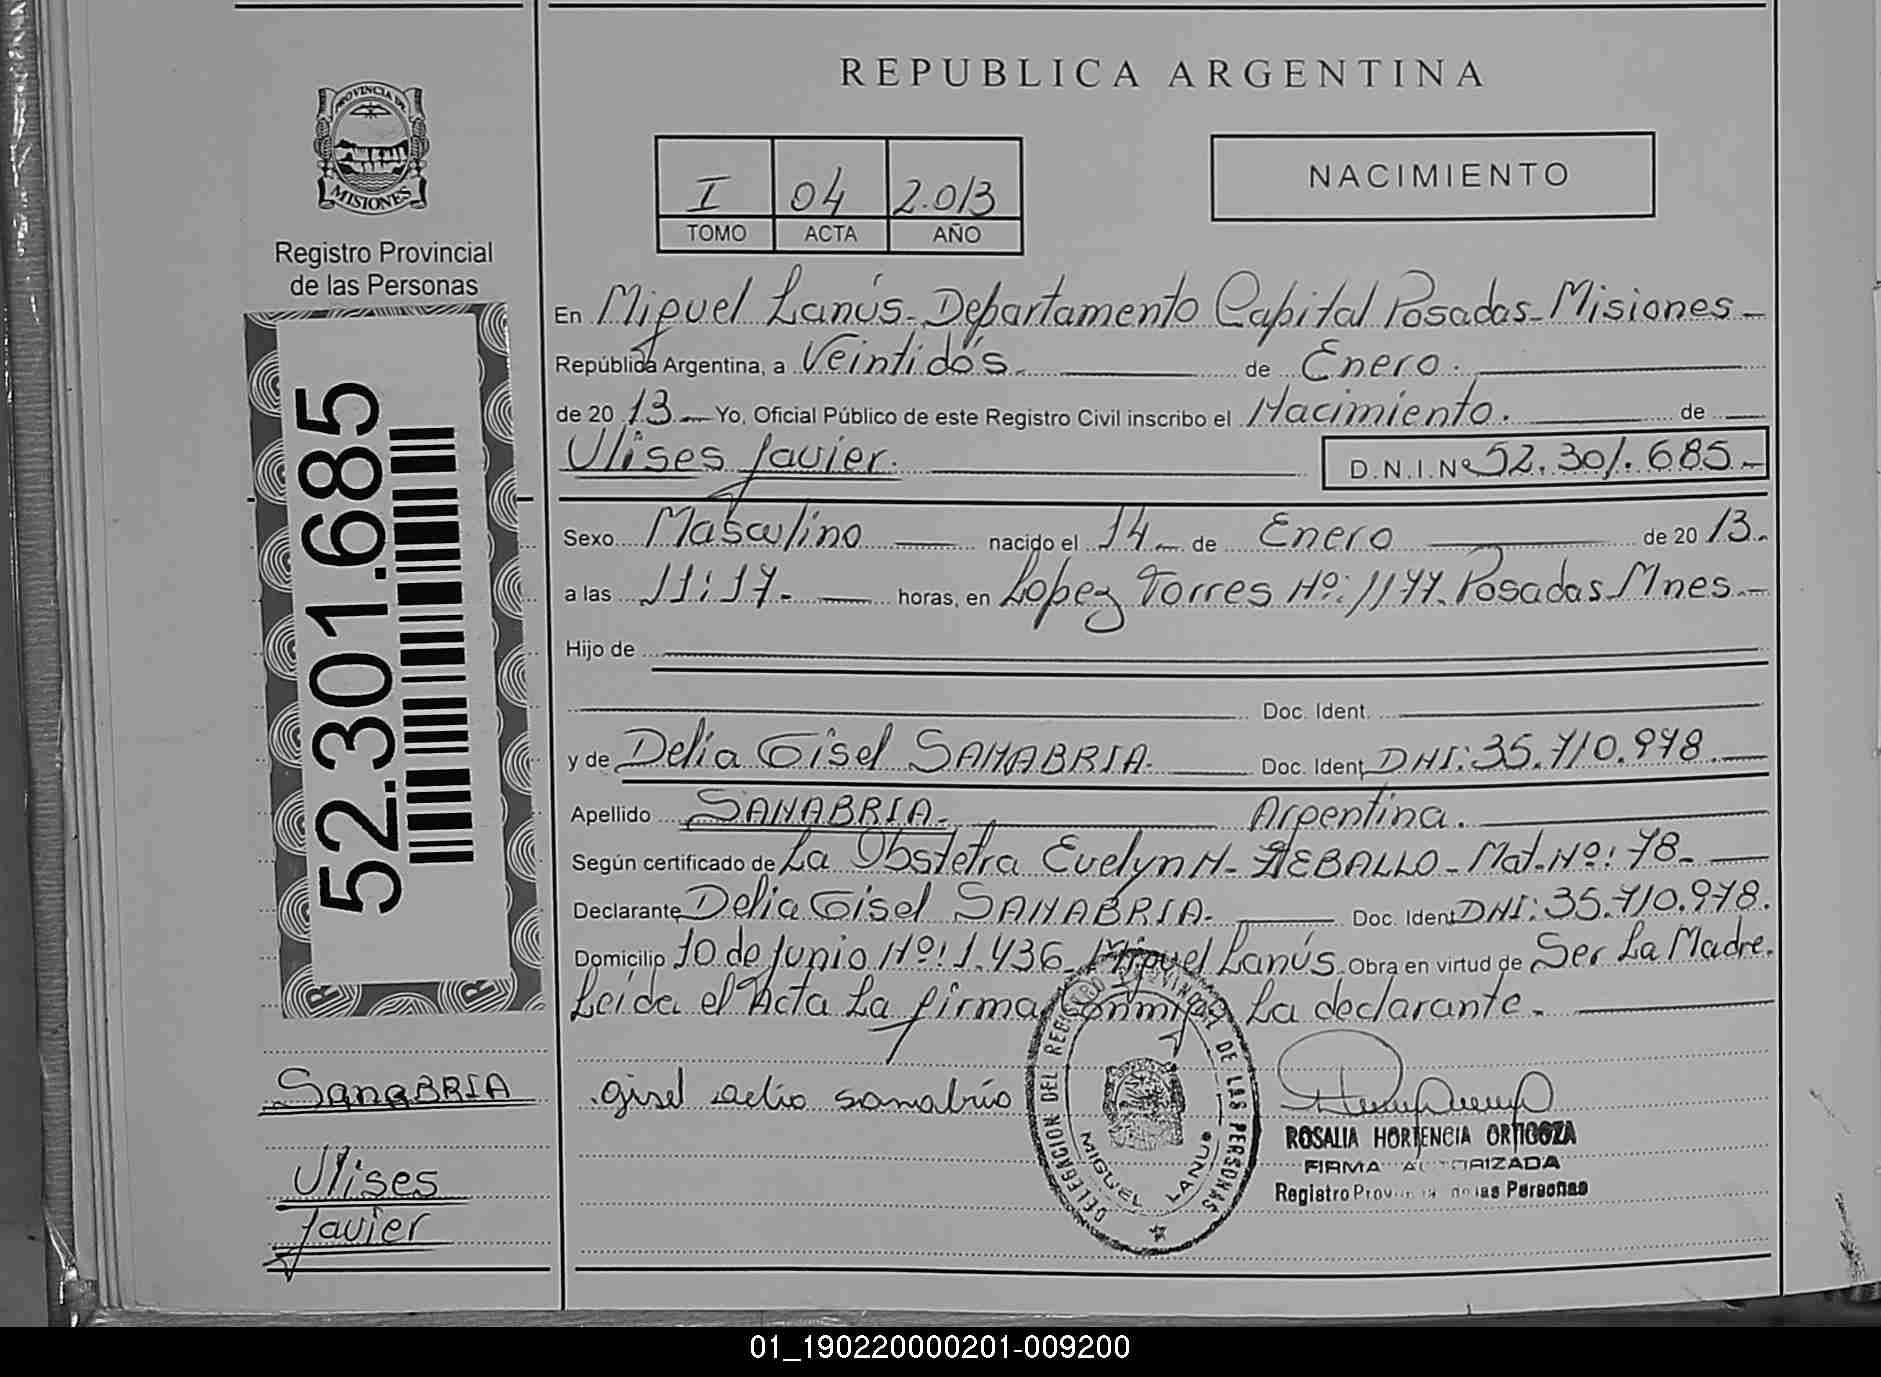 REPUBLICA ARGENTINA
PROVINCIA DE
MISIONES
Registro Provincial
de las Personas
I 04 2.013
TOMO ACTA AÑO
NACIMIENTO
En Miguel Lanús. Departamento Capital Posadas-Misiones-
República Argentina, a Veintidós. de Enero.
de 20 13 Yo, Oficial Público de este Registro Civil inscribo el Nacimiento. de
Ulises Javier. D.N.I.Nº 52.301.685.-
Sexo Masculino nacido el 14 de Enero de 20 13.
a las 11:17. horas, en Lopez Torres Nº: 1177. Posadas Mnes.-
Hijo de
Doc. Ident.
y de Delia Gisel SANABRIA. Doc. Ident. DNI: 35.710.978.
Apellido SANABRIA. Argentina.
Según certificado de La Obstetra Evelyn N. Mat. Nº: 78-
Declarante Delia Gisel SANABRIA. Doc. Ident. DNI: 35.710.978.
Domicilio 10 de Junio Nº: 1.436 Miguel Lanús. Obra en virtud de Ser La Madre.
Leída el Acta La firma Conmigo La declarante.
52.301.685
SanaBRIA
Ulises
Javier
gisel delia sanabria
DELEGACION DEL REGISTRO PROVINCIAL DE LAS PERSONAS
MIGUEL LANUS
ROSALIA HORTENCIA ORTIGOZA
FIRMA AUTORIZADA
Registro Provincial de las Personas
01_190220000201-009200